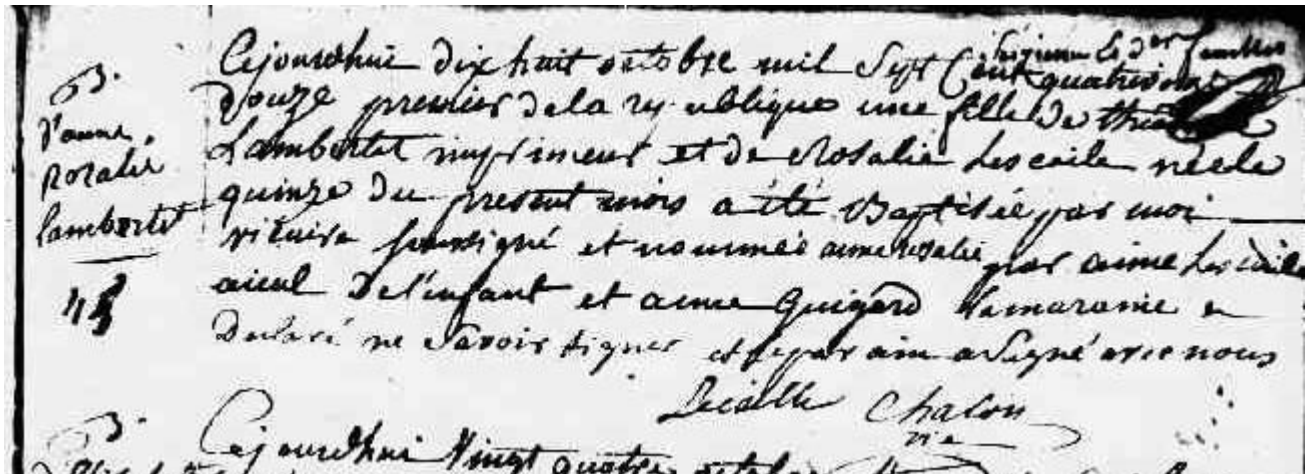 B.
d'anne
rosalie
lambertet
Cejourdhui dix huit octobre mil Sept Cent quatrevingt
douze premier dela republique une fille de
Lambertet imprimeur et de Rosalie Lescaile née le
quinze du present mois a été Baptisée par moi
vicaire soussigné et nommée anne rosalie par aime Lescaile
aieul De l'enfant et anne Guigard lamaraine a
Declaré ne Savoir signer et leparain a Signé avec nous
Lecaille Chalon
vic
B.
Cejourdhui Vingt quatre octobre